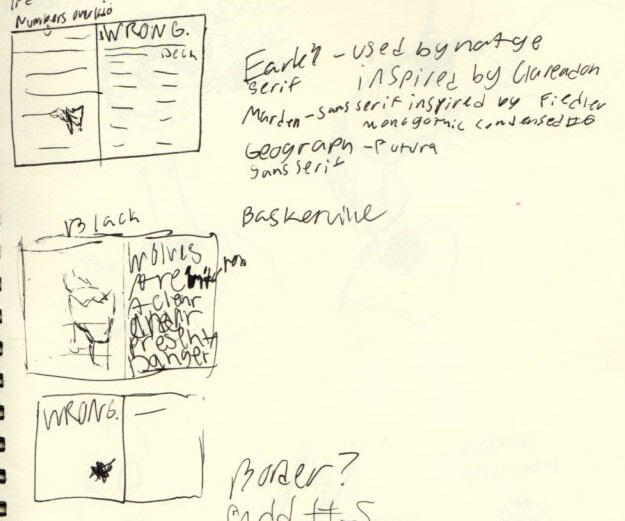 Numbers
WRONG.
Deck
Earle - used by natge
serif inspired by Clarendon
Marden - sans serif inspired by Fiedler
monogothic condensed
Geograph - Futura
sans serif
Baskerville
Black
Wolves
Are
A clear
and
present
Danger
WRONG.
Border?
add #s